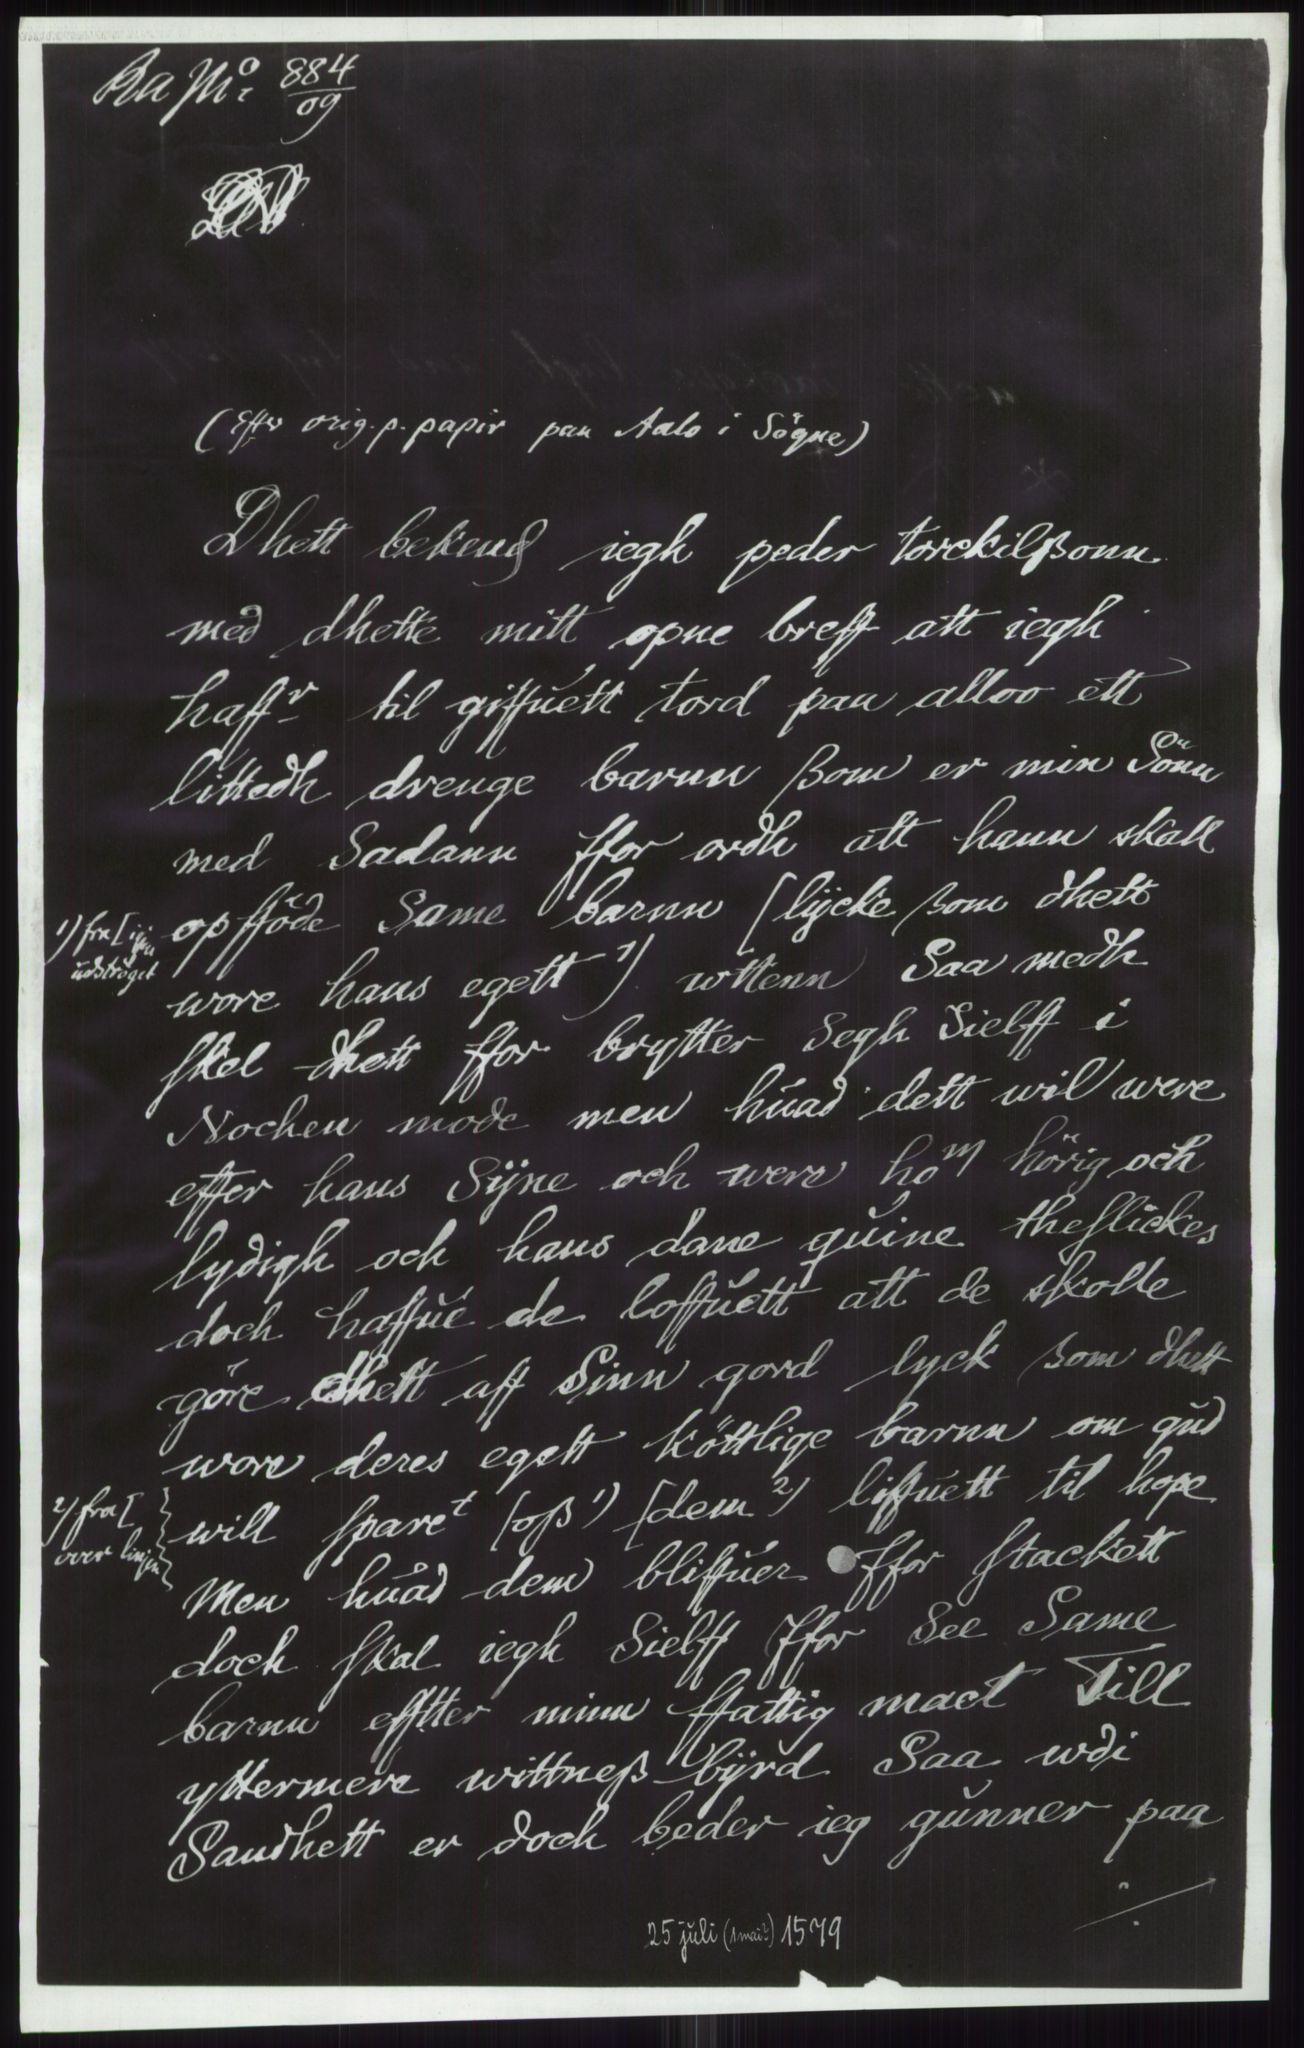 Ra No 884/09
(Efter orig. p. papir paa Aalo i Sögne)
Dhett bekend iegh peder torckilßonn
med dhette mitt opne breff att iegh
haffr til giffuett tord paa alloo ett
littedh drenge barnn ßom er min Sönn
med Sadann ffor ordh att hann skall
opfföde Same barnn [lÿcke ßom dhett
1) fra [ igjen
udstrøget
wore hans egett 1) wttenn Saa medh
skel dhett ffor brytter Segh Sielff i
Nochen mode men huad dett wil were
effter hans Sÿne och were hom hörig och
lydigh och hans dane quine theslickes
doch haffue de loffuett att de skolle
göre dhett aff Sinn gord lyck ßom dhett
wore deres egett köttlige barnn om gud
2) fra [
over linjen
will sparet [oß 1) [dem 2) liffuett til hope
Men huad dem bliffuer ffor stackett
doch skal iegh Sielff ffor See Same
barnn effter minn ffattig mact Till
yttermere wittneß bÿrd Saa wdi
Sandhett er doch beder ieg gunner paa
25 juli (1 mai?) 1579